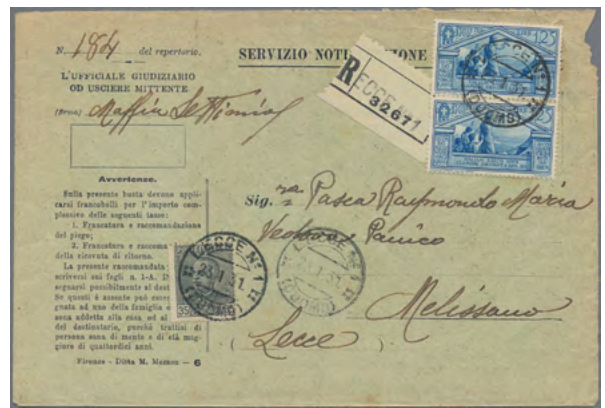 N. 184 del repertorio.
SERVIZIO NOTI
IONE
L'UFFICIALE GIUDIZIARIO
OD USCIERE MITTENTE
(firma) Maffia Settimio
R
LECCE N. 1
32671
1,25
LECCE Nº 1
(DUOMO)
Avvertenze.
Sulla presente busta devono appli-
carsi francobolli per l'importo com-
plessivo delle seguenti tasse:
1. Francatura e raccomandazione
del piego;
2. Francatura e raccoma
della ricevuta di ritorno.
La presente raccomandata
scriversi sui fogli n. 1-A.
segnarsi possibilmente al dest
Se questi è assente può esser
gnata ad uno della famiglia
sona addetta alla casa od al
del destinatario, purchè trattisi di
persona sana di mente e di età mag-
giore di quattordici anni.
Firenze - Ditta M. Mozzon - 6
Sig.ra Pasca Raymondo Maria
Vedova Panico
Melissano
(Lecce)
LECCE Nº 1
23.1.31.
(DUOMO)
LECCE Nº 1
(DUOMO)